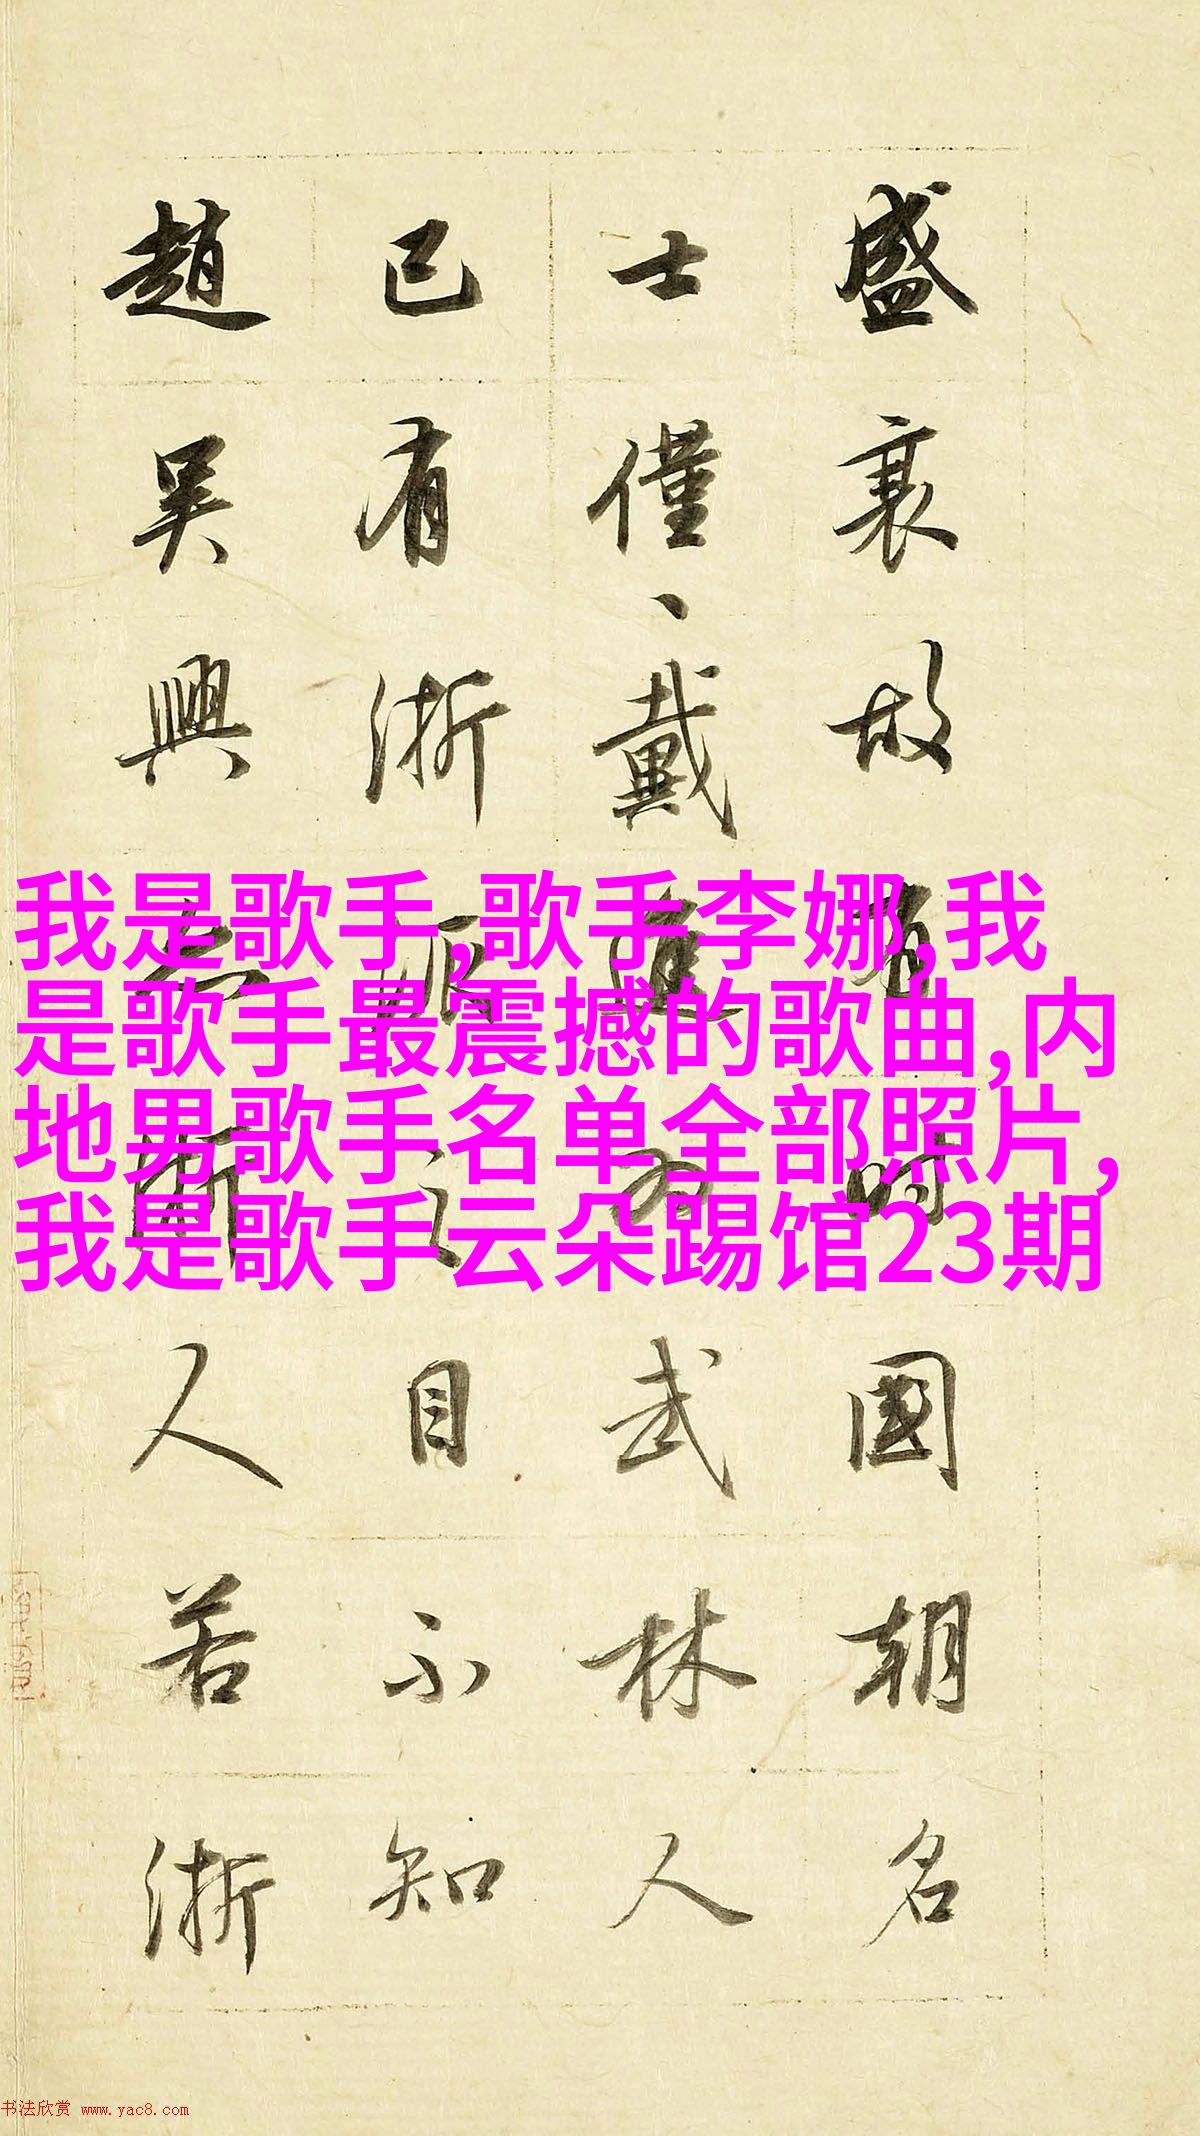 盛衰故有时國朝名
士僅、戴進为武林人
已有浙派之目不知
趙吴興亦浙人若浙
我是歌手,歌手李娜,我
是歌手最震撼的歌曲,内
地男歌手名单全部照片,
我是歌手云朵踢馆23期
书法欣赏 www.yac8.com